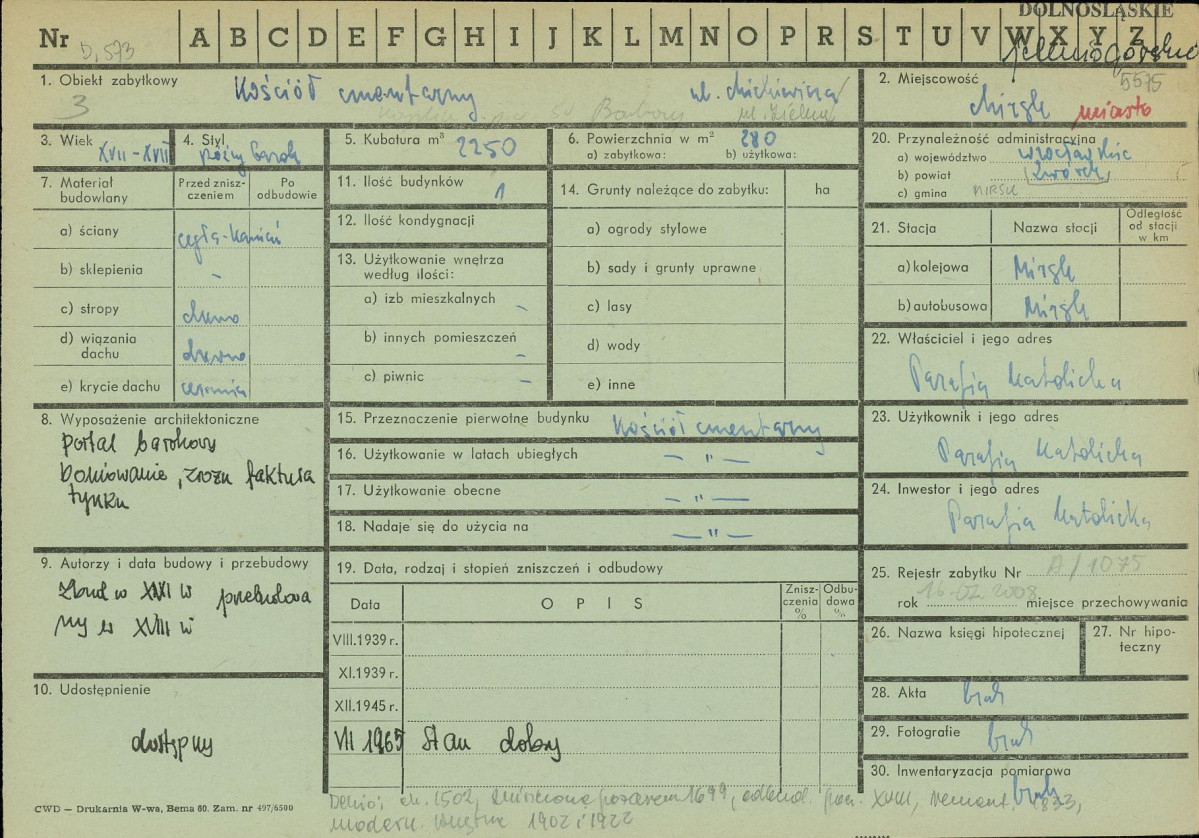 DOLNOŚLĄSKIE
Nr D, 573 A B C D E F G H I J K L M N O P R S T U V W X Y Z
jeleniogórskie
1. Obiekt zabytkowy
Kościół cmentarny
ul. Mickiewicza
3
św Barbary ul. Zielna
2. Miejscowość
5575
Mirsk miasto
3. Wiek
XVII-XVIII
4. Styl
późny barok
5. Kubatura m³ 2250
6. Powierzchnia w m² 280
a) zabytkowa: b) użytkowa:
20. Przynależność administracyjna
a) województwo wrocławskie
b) powiat (Lwówek)
c) gmina MIRSK
7. Materiał budowlany
Przed zniszczeniem
Po odbudowie
a) ściany cegła-kamień
b) sklepienia -
c) stropy drewno
d) wiązania dachu drewno
e) krycie dachu ceramika
11. Ilość budynków 1
12. Ilość kondygnacji
13. Użytkowanie wnętrza według ilości:
a) izb mieszkalnych -
b) innych pomieszczeń -
c) piwnic -
14. Grunty należące do zabytku: ha
a) ogrody stylowe
b) sady i grunty uprawne
c) lasy
d) wody
e) inne
21. Stacja Nazwa stacji
Odległość od stacji w km
a) kolejowa Mirsk
b) autobusowa Mirsk
22. Właściciel i jego adres
Parafia Katolicka
8. Wyposażenie architektoniczne
portal barokowy
boniowanie, zrozn faktura
tynku
15. Przeznaczenie pierwotne budynku Kościół cmentarny
16. Użytkowanie w latach ubiegłych — " —
17. Użytkowanie obecne — " —
18. Nadaje się do użycia na — " —
23. Użytkownik i jego adres
Parafia Katolicka
24. Inwestor i jego adres
Parafia Katolicka
9. Autorzy i data budowy i przebudowy
Zbud w XVI w przebudowa
ny w XVIII w
19. Data, rodzaj i stopień zniszczeń i odbudowy
Data OPIS
Zniszczenia %
Odbudowa %
VIII.1939 r.
XI.1939 r.
XII.1945 r.
VII 1965 Stan dobry
25. Rejestr zabytku Nr A/1075
16.07.2008
rok miejsce przechowywania
26. Nazwa księgi hipotecznej
27. Nr hipoteczny
10. Udostępnienie
dostępny
28. Akta brak
29. Fotografie brak
30. Inwentaryzacja pomiarowa
brak
CWD — Drukarnia W-wa, Bema 60. Zam. nr 497/6500
Dehio: ok. 1502, zniszczona pożarem 1699, odbud. pocz. XVIII, remont 1833,
modern. wnętrza 1902 i 1922